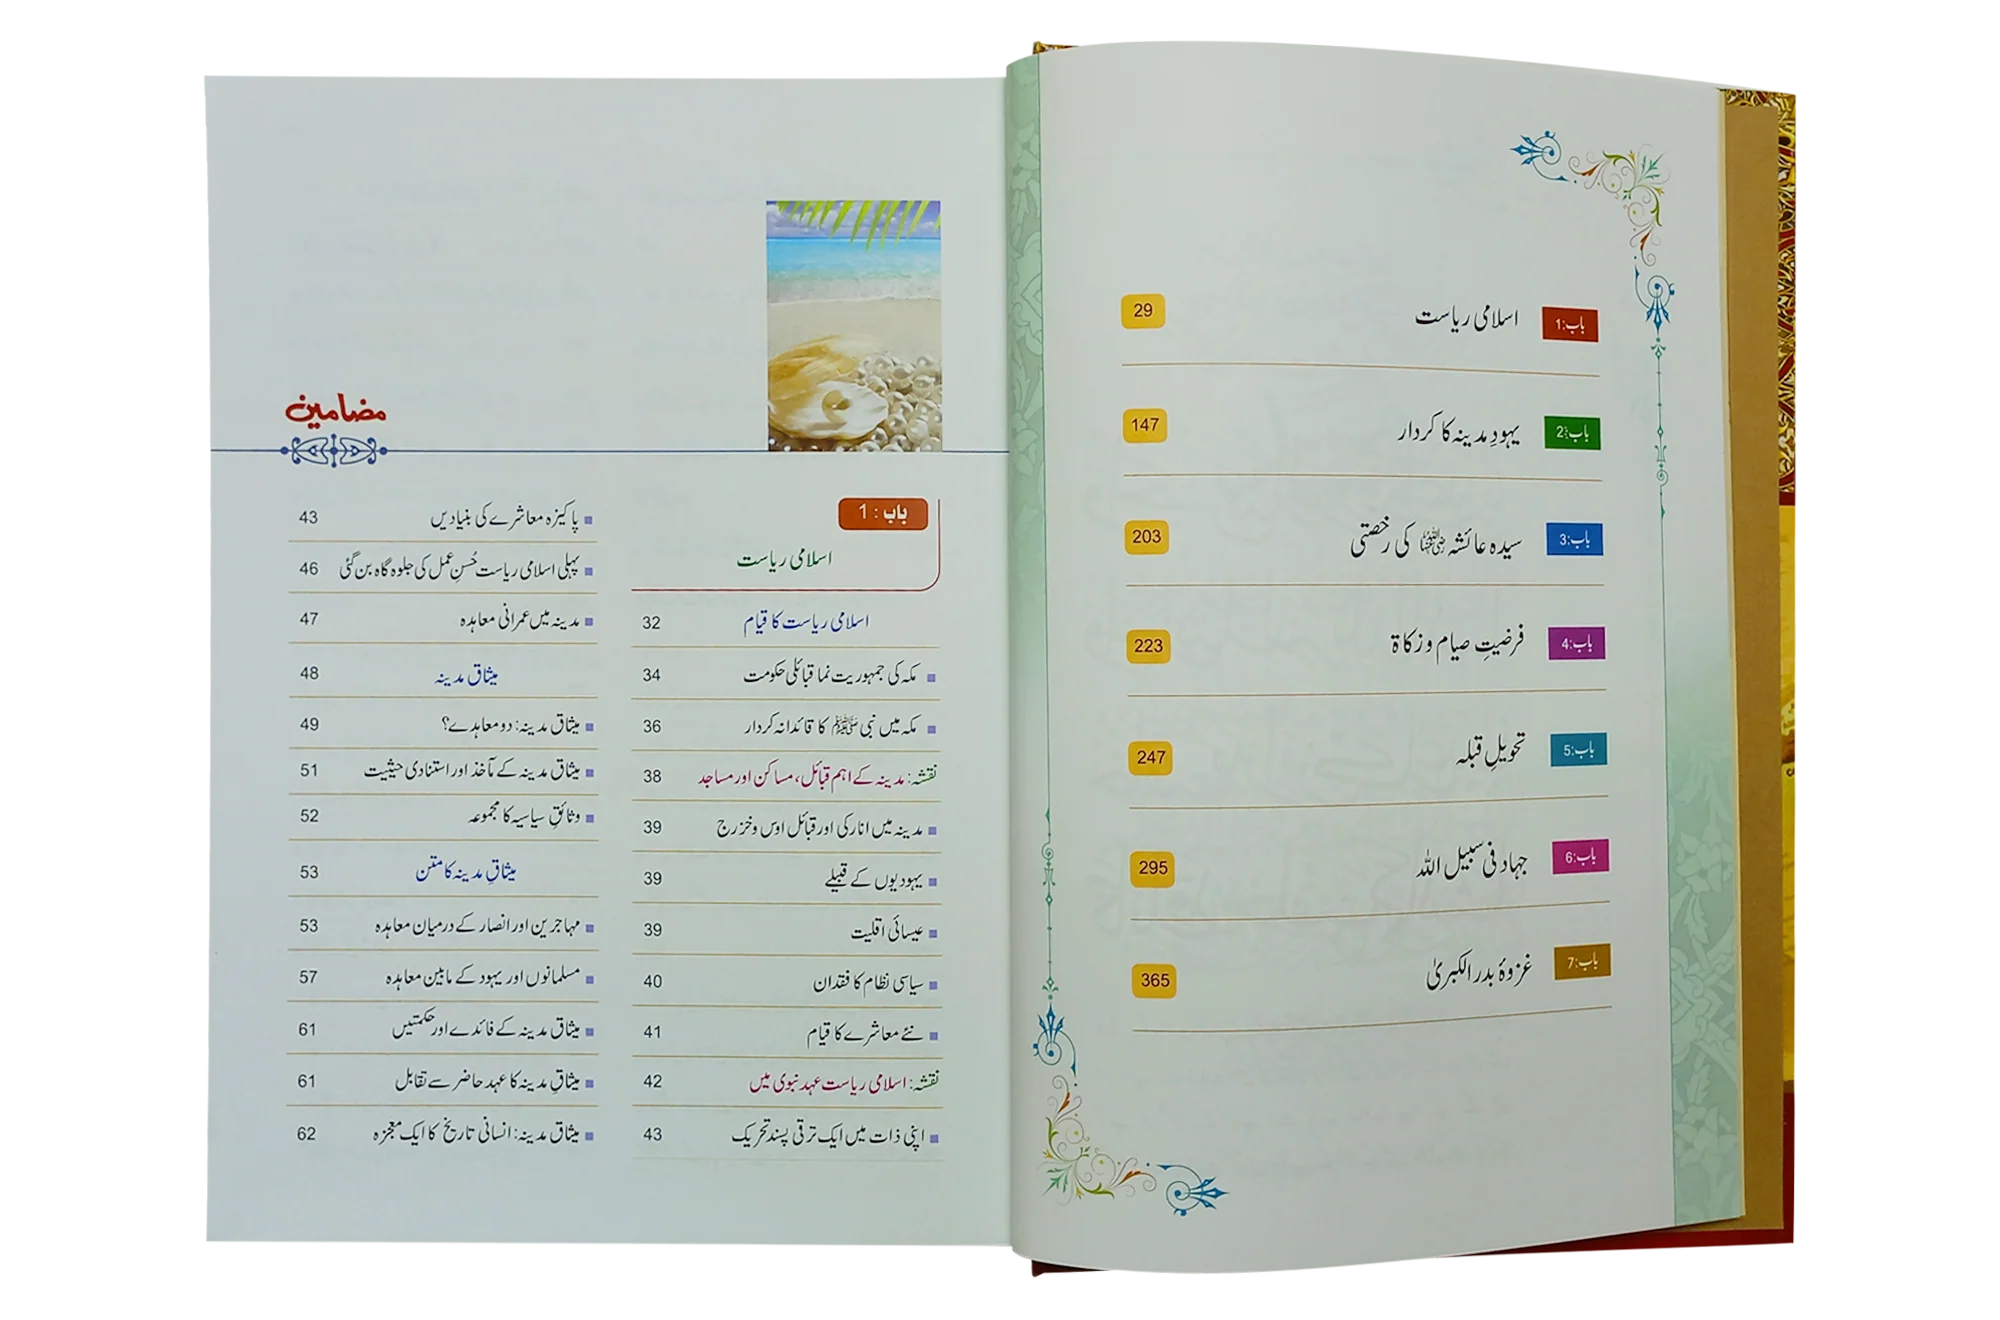 باب:1 اسلامی ریاست 29
باب:2 یہودِ مدینہ کا کردار 147
باب:3 سیدہ عائشہ رضی اللہ عنہا کی رخصتی 203
باب:4 فرضیتِ صیام و زکاة 223
باب:5 تحویلِ قبلہ 247
باب:6 جہاد فی سبیل اللہ 295
باب:7 غزوۂ بدر الکبریٰ 365
مضامین
باب : 1
اسلامی ریاست
اسلامی ریاست کا قیام 32
مکہ کی جمہوریت نما قبائلی حکومت 34
مکہ میں نبی ﷺ کا قائدانہ کردار 36
نقشہ: مدینہ کے اہم قبائل، مساکن اور مساجد 38
مدینہ میں انارکی اور قبائل اوس و خزرج 39
یہودیوں کے قبیلے 39
عیسائی اقلیت 39
سیاسی نظام کا فقدان 40
نئے معاشرے کا قیام 41
نقشہ: اسلامی ریاست عہد نبوی میں 42
اپنی ذات میں ایک ترقی پسند تحریک 43
پاکیزہ معاشرے کی بنیادیں 43
پہلی اسلامی ریاست حُسنِ عمل کی جلوہ گاہ بن گئی 46
مدینہ میں عمرانی معاہدہ 47
میثاق مدینہ 48
میثاق مدینہ: دو معاہدے؟ 49
میثاق مدینہ کے مآخذ اور استنادی حیثیت 51
وثائقِ سیاسیہ کا مجموعہ 52
میثاقِ مدینہ کا متن 53
مہاجرین اور انصار کے درمیان معاہدہ 53
مسلمانوں اور یہود کے مابین معاہدہ 57
میثاق مدینہ کے فائدے اور حکمتیں 61
میثاقِ مدینہ کا عہد حاضر سے تقابل 61
میثاق مدینہ: انسانی تاریخ کا ایک معجزہ 62